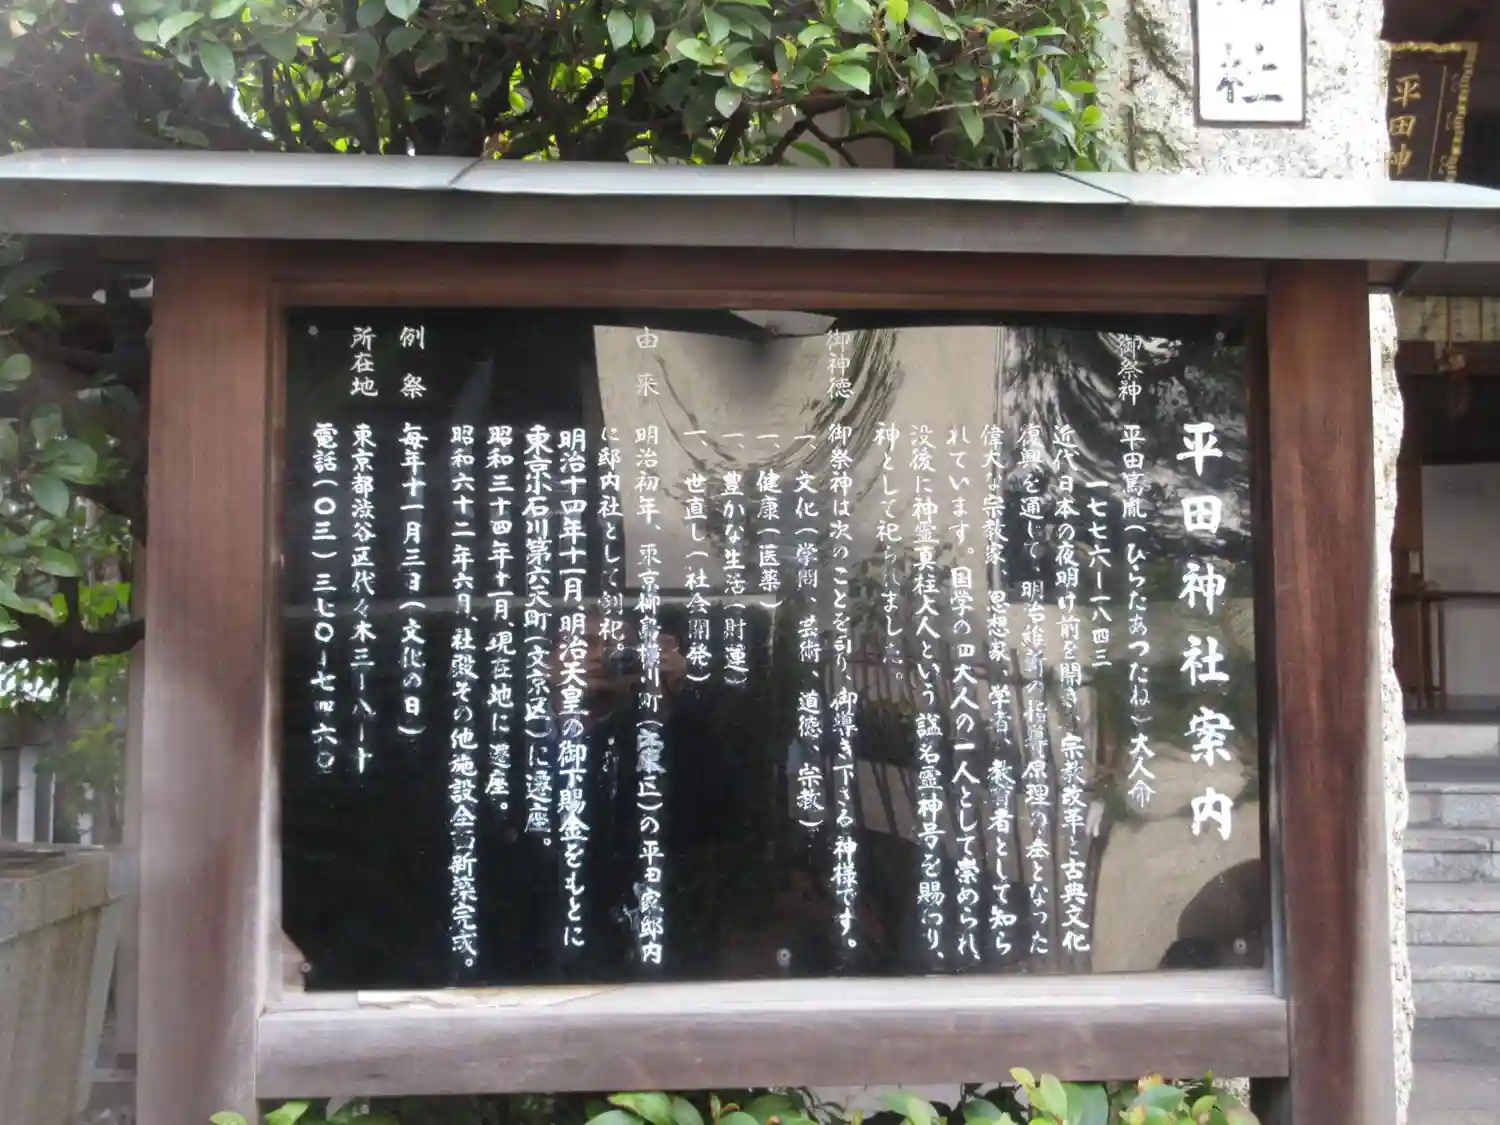 社
平田神
平田神社案内
御祭神　平田篤胤(ひらたあつたね)大人命
一七七六ー一八四三
近代日本の夜明け前を開き、宗教改革と古典文化
復興を通して、明治維新の指導原理の基となった
偉大な宗教家、思想家、学者、教育者として知ら
れています。国学の四大人の一人として崇められ、
没後に神霊真柱大人という謚名霊神号を賜わり、
神として祀られました。
御神徳　御祭神は次のことを司り、御導き下さる神様です。
一、文化(学問、芸術、道徳、宗教)
一、健康(医薬)
一、豊かな生活(財運)
一、世直し(社会開発)
由来　明治初年、東京柳島横川町(区)の平田家邸内
に邸内社として創祀。
明治十四年十一月、明治天皇の御下賜金をもとに
東京小石川第六天町(文京区)に遷座。
昭和三十四年十一月、現在地に遷座。
昭和六十二年六月、社殿その他施設全面新築完成。
例祭　毎年十一月三日(文化の日)
所在地　東京都渋谷区代々木三ー八ー十
電話(〇三)三七〇ー七四六〇